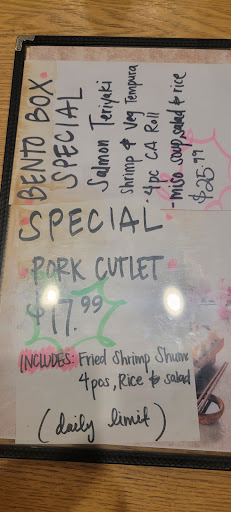 BENTO BOX
SPECIAL
Salmon Teriyaki
Shrimp & Veg Tempura
· 4pc CA Roll
- miso soup, salad & rice
$25.99
SPECIAL
PORK CUTLET
$17.99
INCLUDES: Fried Shrimp Shumai
4pcs, Rice & salad
(daily limit)